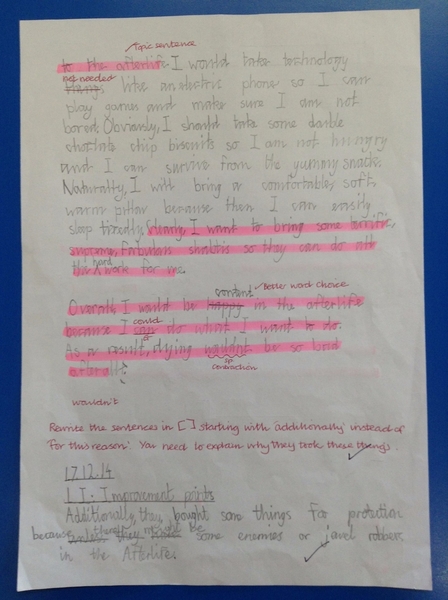 Topic sentence
to the afterlife I would take technology
not needed
things like an electric phone so I can
play games and make sure I am not
bored. Obviously, I should take some dable
choclate chip biscuits so I am not hungry
and I can survive from the yummy snacks.
Naturally, I will bring a comfortable, soft,
warm pillow because then I can easily
sleep I want to bring some terrific,
supreme, fabulous so they can do all
hard
the work for me.
content better word choice
Overall, I would be happy in the afterlife
could
because I can do what I want to do.
As a result, dying wouldn't be so bad
sp
after all.
contraction
wouldn't
Rewrite the sentences in [ ] starting with 'additionally' instead of
'For this reason'. You need to explain why they took these things.
17.12.14
L.I: Improvement points
Additionally, they bought some things for protection
there might be
because unless they some enemies or jewel robbers
in the Afterlife.